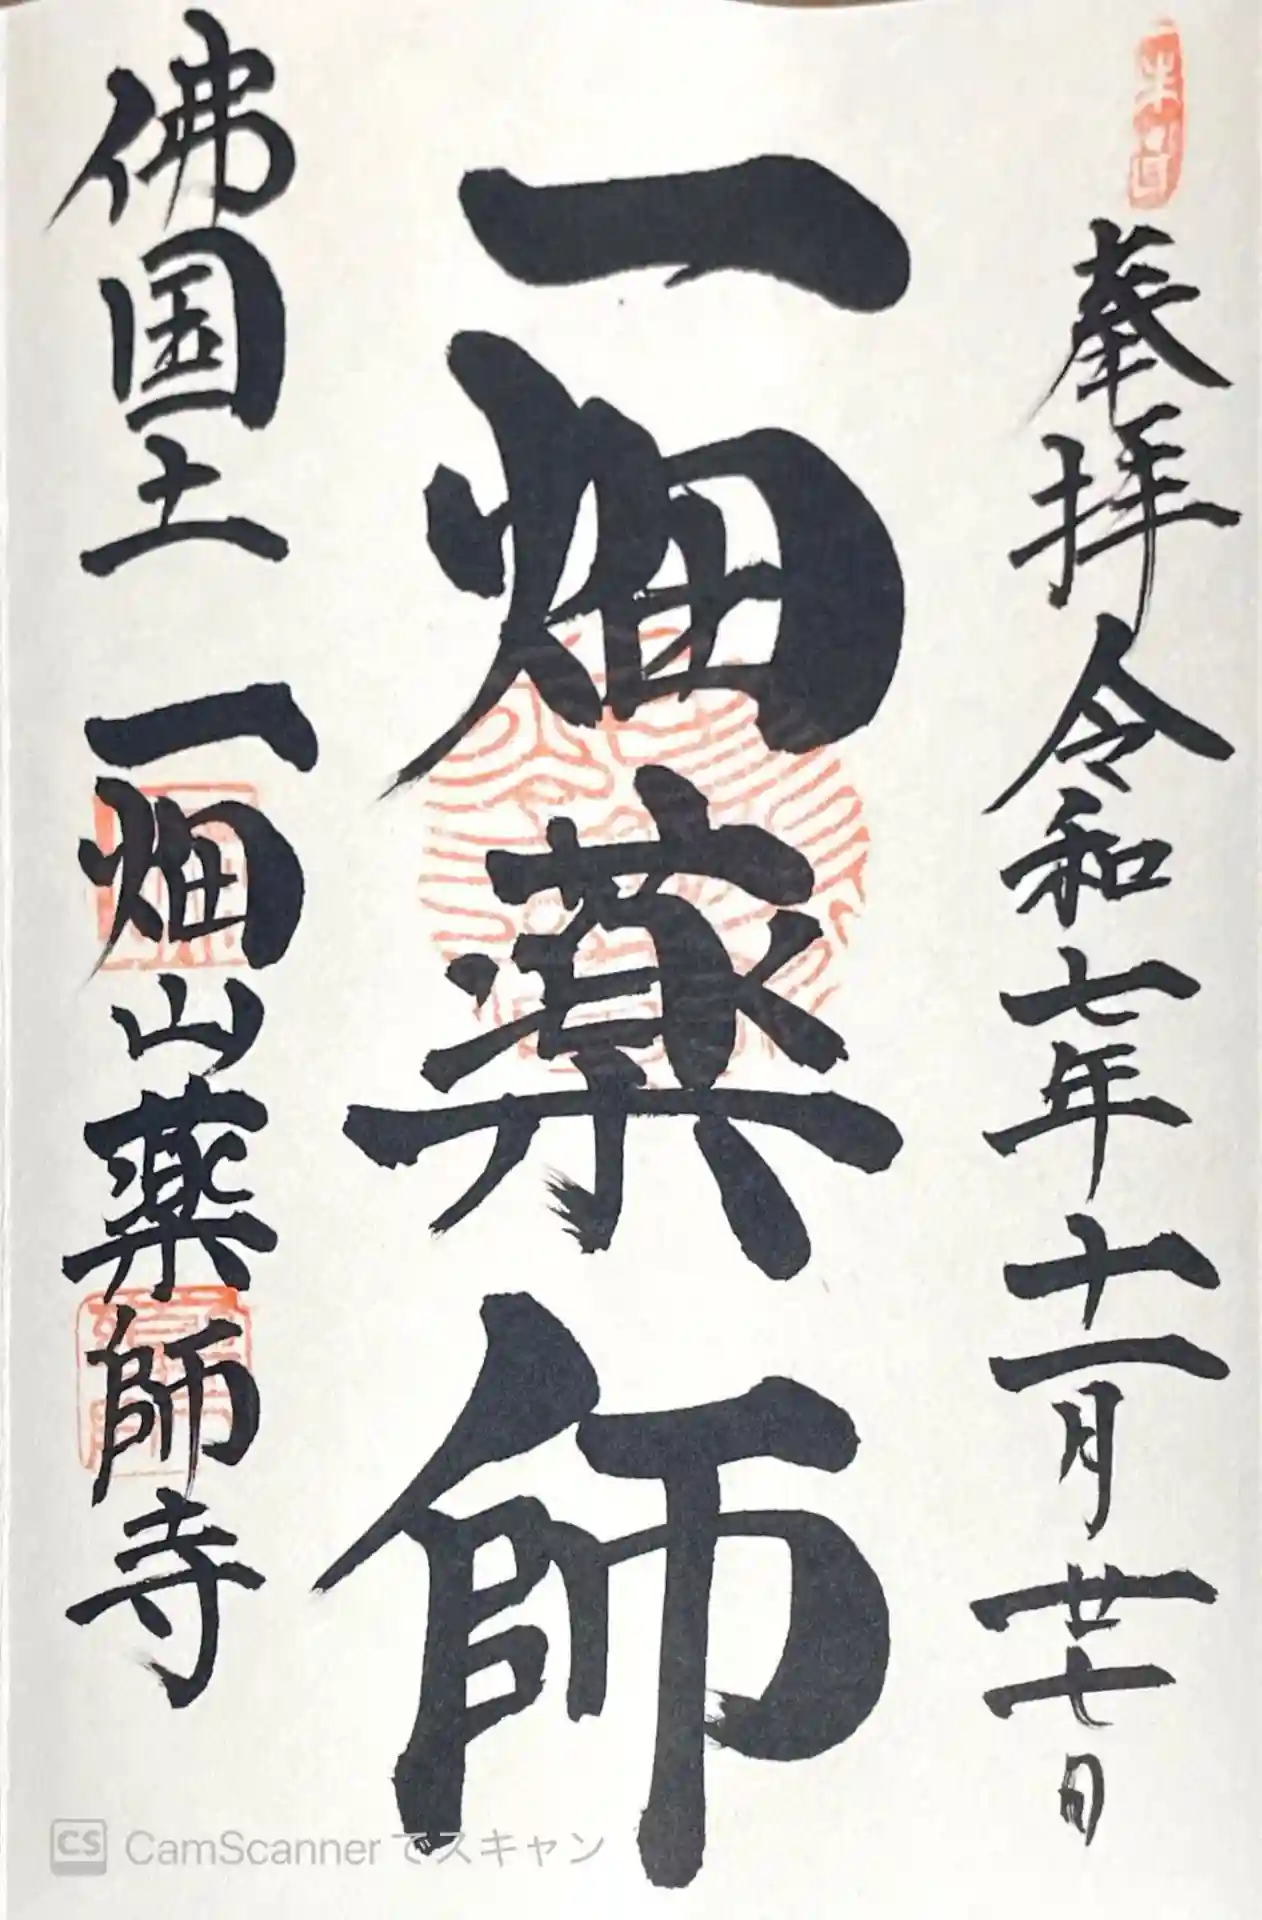 奉拝 令和七年十一月廿七日
一畑薬師
佛国土 一畑山薬師寺
CS CamScanner でスキャン